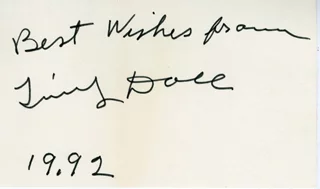 Best Wishes from
Tiny Doll
19.92